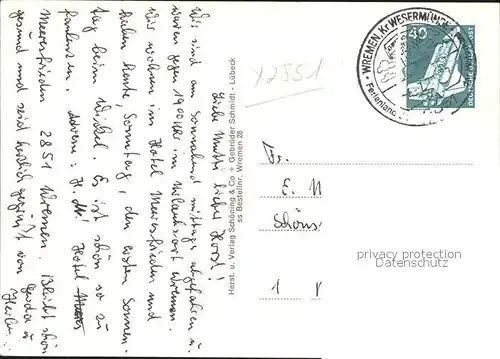 Liebe Mutti, lieber Horst!
Wir sind am Sonnabend mittags abgefahren u.
waren gegen 19.00 Uhr im Urlaubsort Wremen.
Wir wohnen im Hotel Meeresfrieden und
haben heute, Sonntag, den ersten Sonnen-
tag beim Wickel. Es ist schön so zu
faulenzen. Adresse: H. M. Hotel
Meeresfrieden 2851 Wremen. Bleibt schön
gesund und seid herzlich gegrüßt von Gerda u.
Herst. u. Verlag Schöning & Co + Gebrüder Schmidt - Lübeck
ss Bestellnr. Wremen 28
2851
WREMEN, Kr WESERMÜNDE
2851
40
DEUTSCHE BUNDESPOST
Fr.
E. M
Schöns
1
privacy protection
Datenschutz